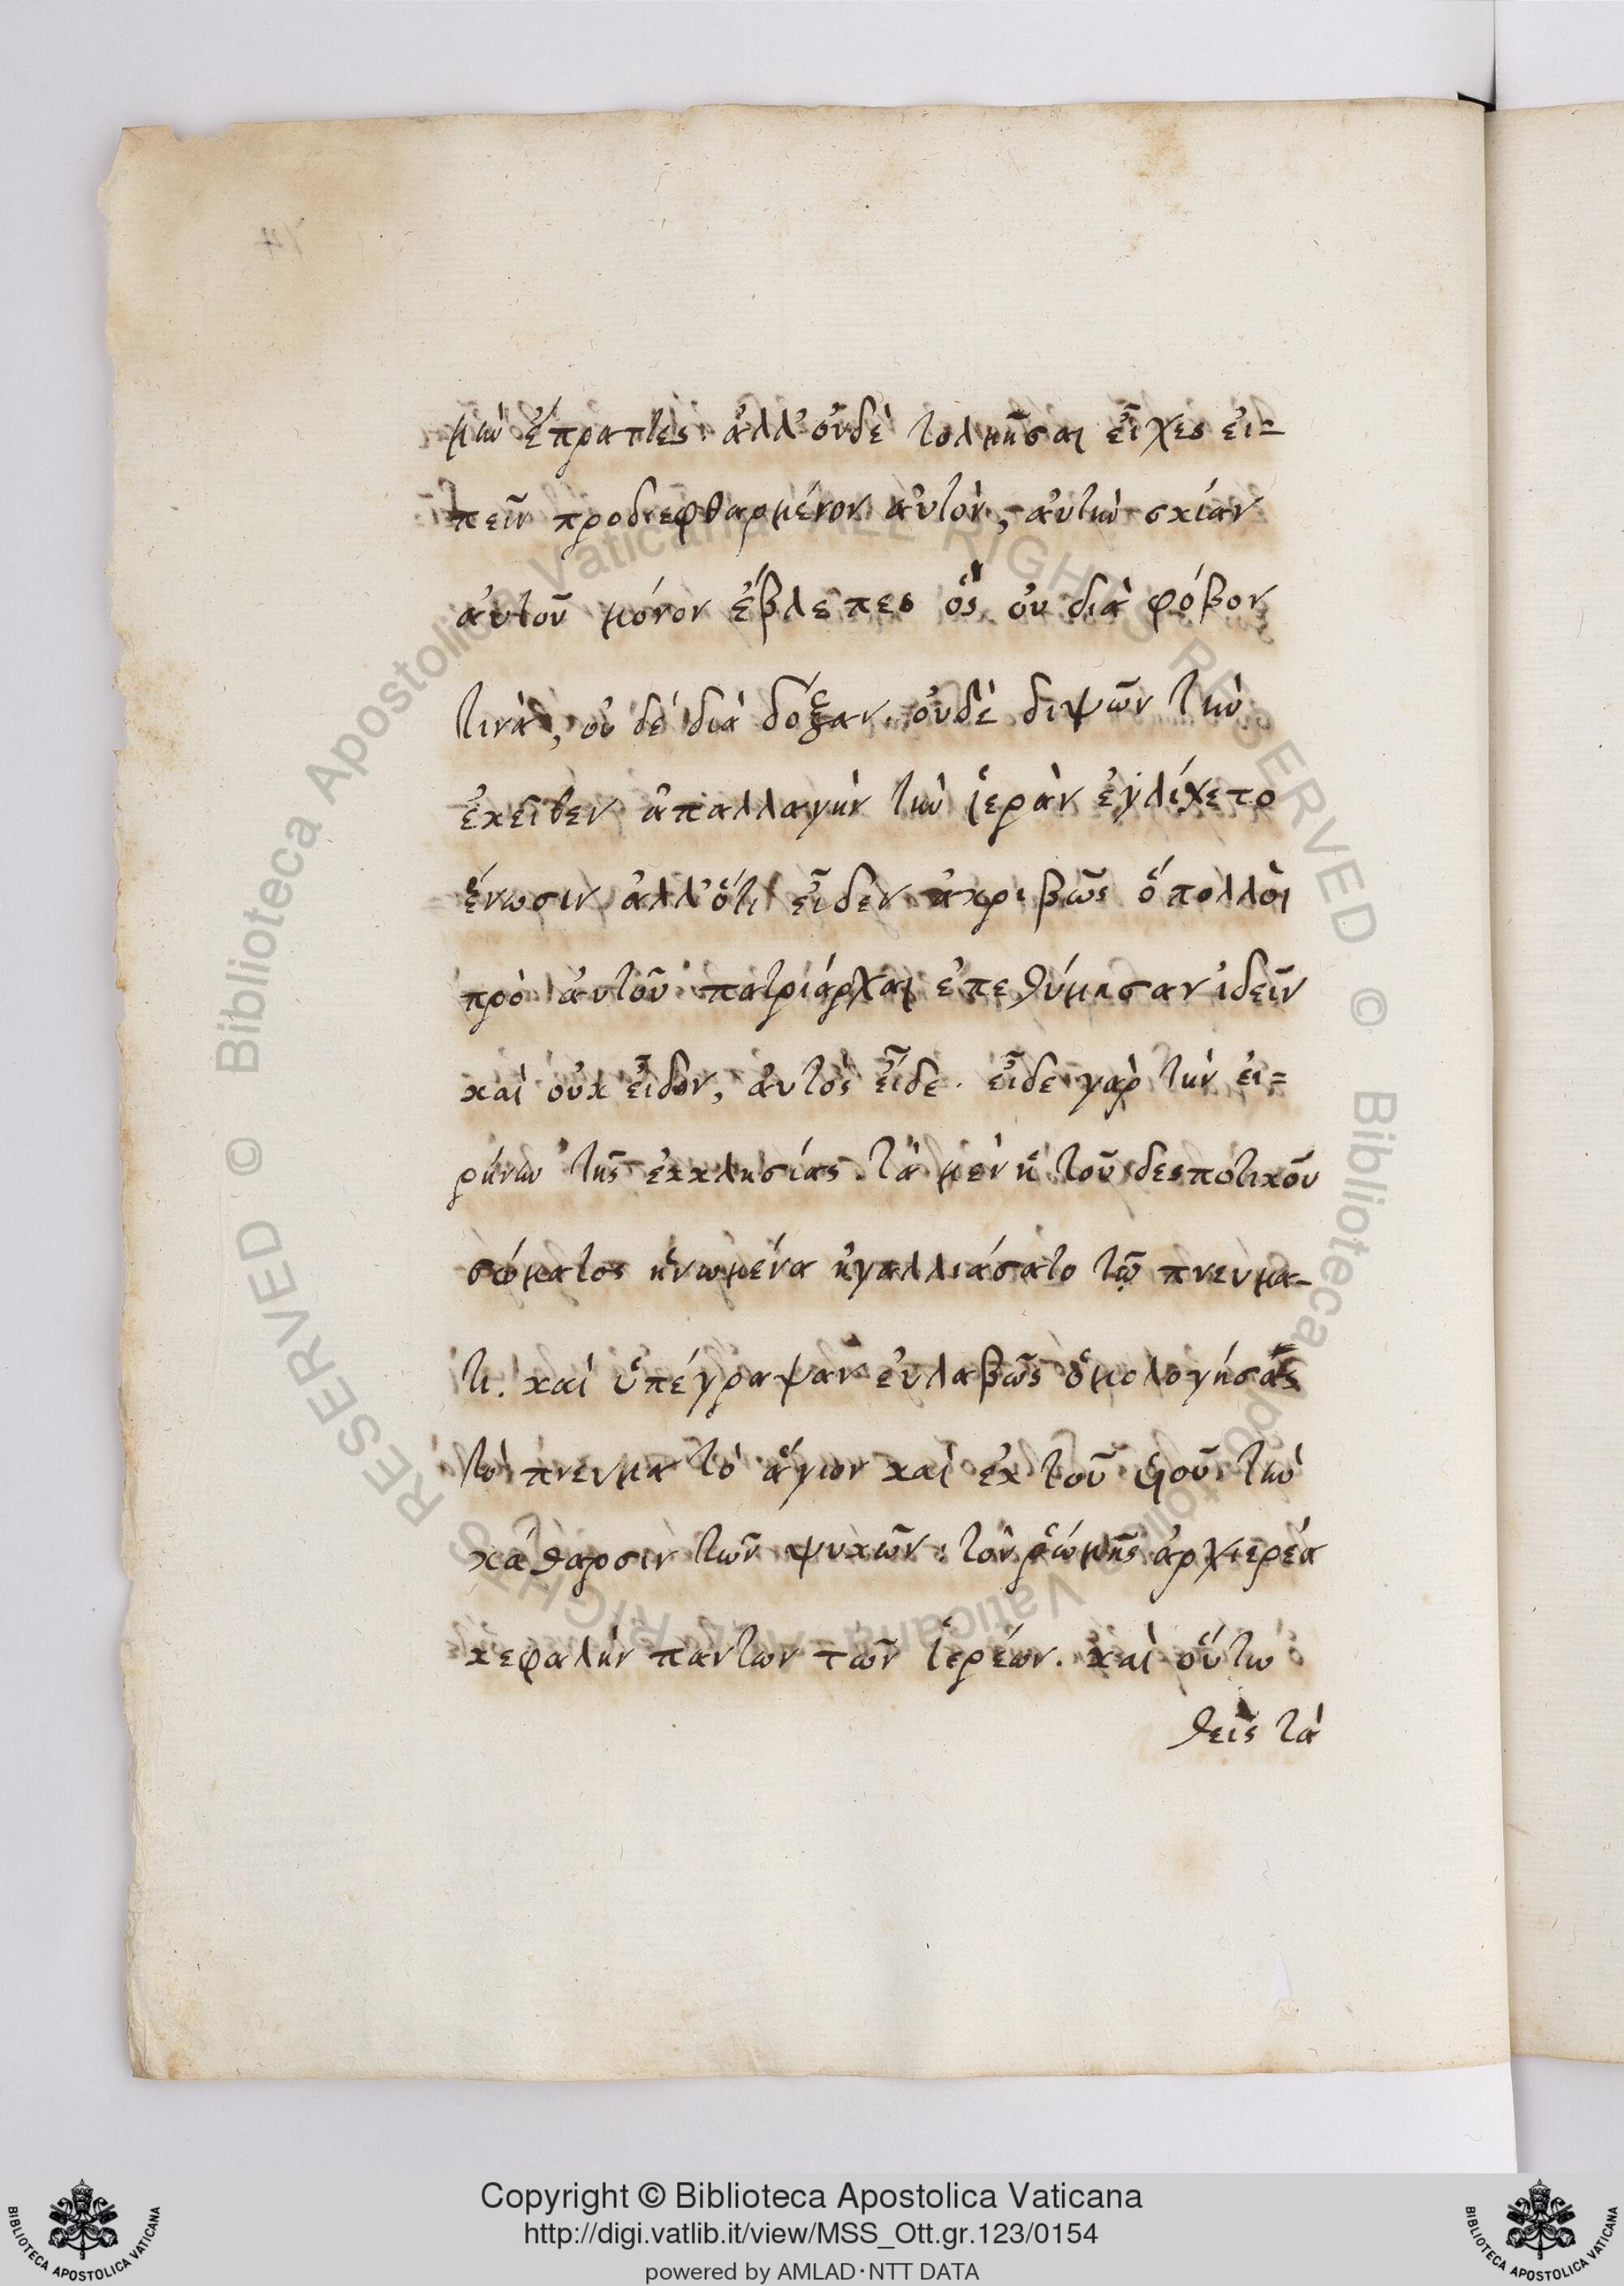 μὴν ἔπραττες· ἀλλ' οὐδὲ τολμῆσαι εἶχες εἰ-
πεῖν προδιεφθαρμένον αὐτὸν, αὐτὴν σκιάν
αὐτοῦ μόνον ἔβλεπες ὃς οὐ διὰ φόβον
τινὰ, οὐ δὲ διὰ δόξαν. οὐδὲ διψῶν τὴν
ἐκεῖθεν ἀπαλλαγὴν τὴν ἱερὰν ἐγλίχετο
ἕνωσιν ἀλλ' ὅτι εἶδεν ἀκριβῶς ὅ πολλοὶ
πρὸ αὐτοῦ πατριάρχαι ἐπεθύμησαν ἰδεῖν
καὶ οὐκ εἶδον, αὐτὸς εἶδε. εἶδε γὰρ τὴν εἰ=
ρήνην τῆς ἐκκλησίας. τὰ μὲν ἤ τοῦ δεσποτικοῦ
σώματος ἡνωμένα ἠγαλλιάσατο τῷ πνευμα-
τι. καὶ ὑπέγραψαν εὐλαβῶς ὁμολογήσας
τὸ πνευμα τὸ ἅγιον καὶ ἐκ τοῦ υἱοῦ τὴν
κάθαρσιν τῶν ψυχῶν· τὸν ῥώμης ἀρχιερέα
κεφαλὴν παντων τῶν ἱερέων. καὶ οὕτω
θεὶς τὰ
Copyright © Biblioteca Apostolica Vaticana
http://digi.vatlib.it/view/MSS_Ott.gr.123/0154
powered by AMLAD·NTT DATA
BIBLIOTECA APOSTOLICA VATICANA
BIBLIOTECA APOSTOLICA VATICANA